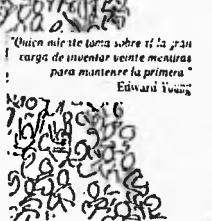 "Quien miente toma sobre sí la gran
carga de inventar veinte mentiras
para mantener la primera"
Edward Young